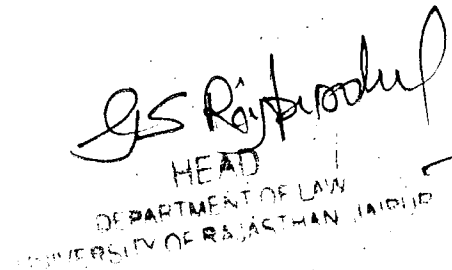 GS Rajpurohit
HEAD
DEPARTMENT OF LAW
UNIVERSITY OF RAJASTHAN JAIPUR